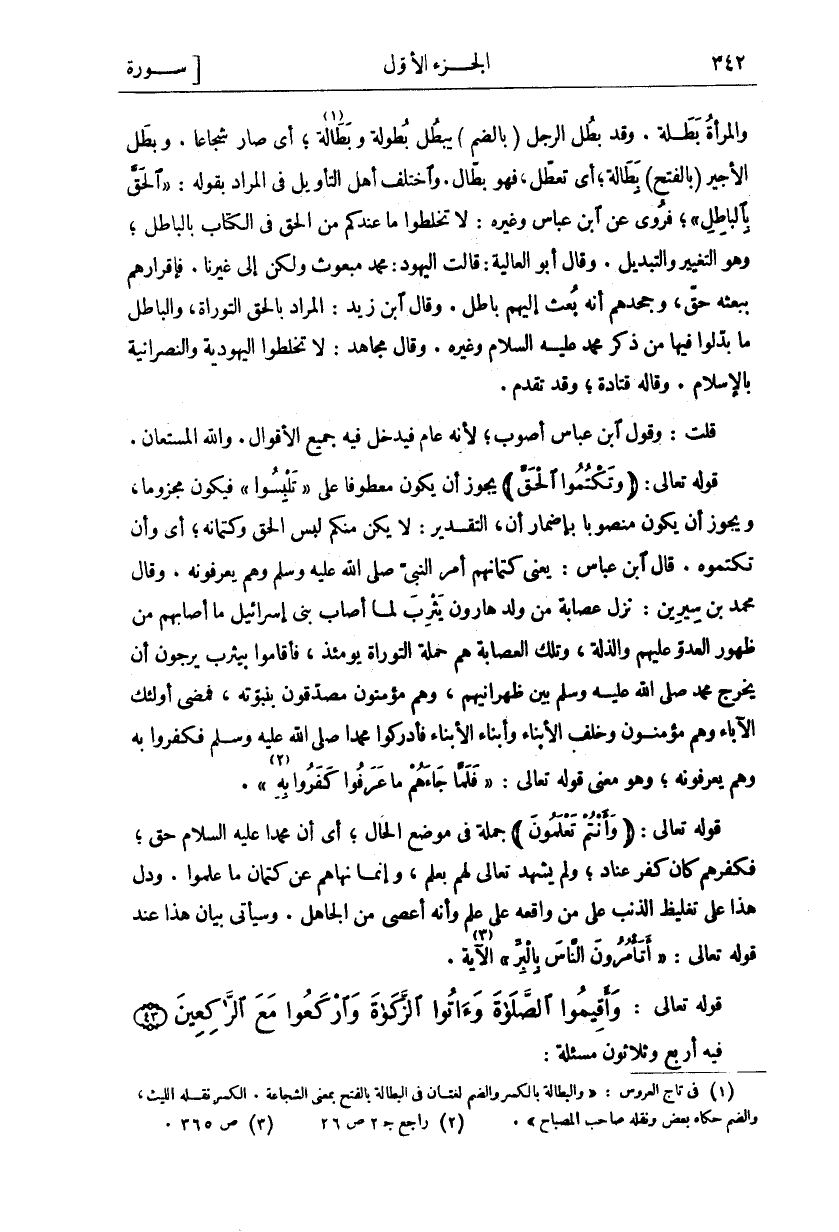 ٣٤٢ الجـزء الأوّل [ ســورة
والمرأةُ بَطَـلة . وقد بطُل الرجل ( بالضم ) يبطُل بُطولة و بَطَالة (١) ؛ أى صار شجاعا . و بطَل
الأجير (بالفتح) بِطَالة؛ أى تعطّل، فهو بطّال. وٱختلف أهل التأويل فى المراد بقوله : «ٱلحَقَّ
بِٱلباطِلِ» ؛ فرُوى عن ٱبن عباس وغيره : لا تخلطوا ما عندكم من الحق فى الكتاب بالباطل ؛
وهو التغيير والتبديل . وقال أبو العالية : قالت اليهود : محمد مبعوث ولكن إلى غيرنا . فإقرارهم
ببعثه حقّ ، و جحدهم أنه بُعث إليهم باطل . وقال ٱبن زيد : المراد بالحق التوراة، والباطل
ما بدّلوا فيها من ذكر محمد عليـه السلام وغيره . وقال مجاهد : لا تخلطوا اليهودية والنصرانية
بالإسلام . وقاله قتادة ؛ وقد تقدم .
قلت : وقول ٱبن عباس أصوب؛ لأنه عام فيدخل فيه جميع الأقوال. والله المستعان .
قوله تعالى: ﴿ وَتَكْتُمُوا ٱلْحَقَّ ﴾ يجوز أن يكون معطوفا على « تَلْبِسُوا » فيكون مجزوما ،
و يجوز أن يكون منصوبا بإضمار أن، التقـدير : لا يكن منكم لبس الحق وكتمانه ؛ أى وأن
تكتموه . قال ٱبن عباس : يعنى كتمانهم أمر النبىّ صلى الله عليه وسلم وهم يعرفونه . وقال
محمد بن سيرين : نزل عصابة من ولد هارون يَثْرِبَ لمـا أصاب بنى إسرائيل ما أصابهم من
ظهور العدوّ عليهم والذلة ، وتلك العصابة هم حملة التوراة يومئذ ، فأقاموا بيثرب يرجون أن
يخرج محمد صلى الله عليـه وسلم بين ظهرانيهم ، وهم مؤمنون مصدّقون بنبوّته ، فمضى أولئك
الآباء وهم مؤمنـون وخلف الأبناء وأبناء الأبناء فأدركوا محمدا صلى الله عليه وسـلم فكفروا به
وهم يعرفونه ؛ وهو معنى قوله تعالى : « فَلَمَّا جَاءَهُمْ ما عَرَفُوا كَفَرُوا بِهِ (٢) » .
قوله تعالى : ﴿ وَأَنْتُمْ تَعْلَمُونَ ﴾ جملة فى موضع الحال ؛ أى أن محمدا عليه السلام حق ؛
فكفرهم كان كفر عناد ؛ ولم يشهد تعالى لهم بعلم ، و إنمـا نهاهم عن كتمان ما علموا . ودل
هذا على تغليظ الذنب على من واقعه على علم وأنه أعصى من الجاهل . وسيأتى بيان هذا عند
قوله تعالى : « أَتَأْمُرُونَ النَّاسَ بِالْبِرِّ (٣) » الآية .
قوله تعالى : وَأَقِيمُوا ٱلصَّلَوٰةَ وَءَاتُوا ٱلزَّكَوٰةَ وَٱرْكَعُوا مَعَ ٱلرَّٰكِعِينَ ٤٣
فيه أربع وثلاثون مسئلة :
(١) فى تاج العروس : « والبطالة بالكسر والضم لغتـان فى البطالة بالفتح بمعنى الشجاعة . الكسر نقـله الليث ،
والضم حكاه بعض ونقله صاحب المصباح » . (٢) راجع جـ ٢ ص ٢٦ (٣) ص ٣٦٥ .